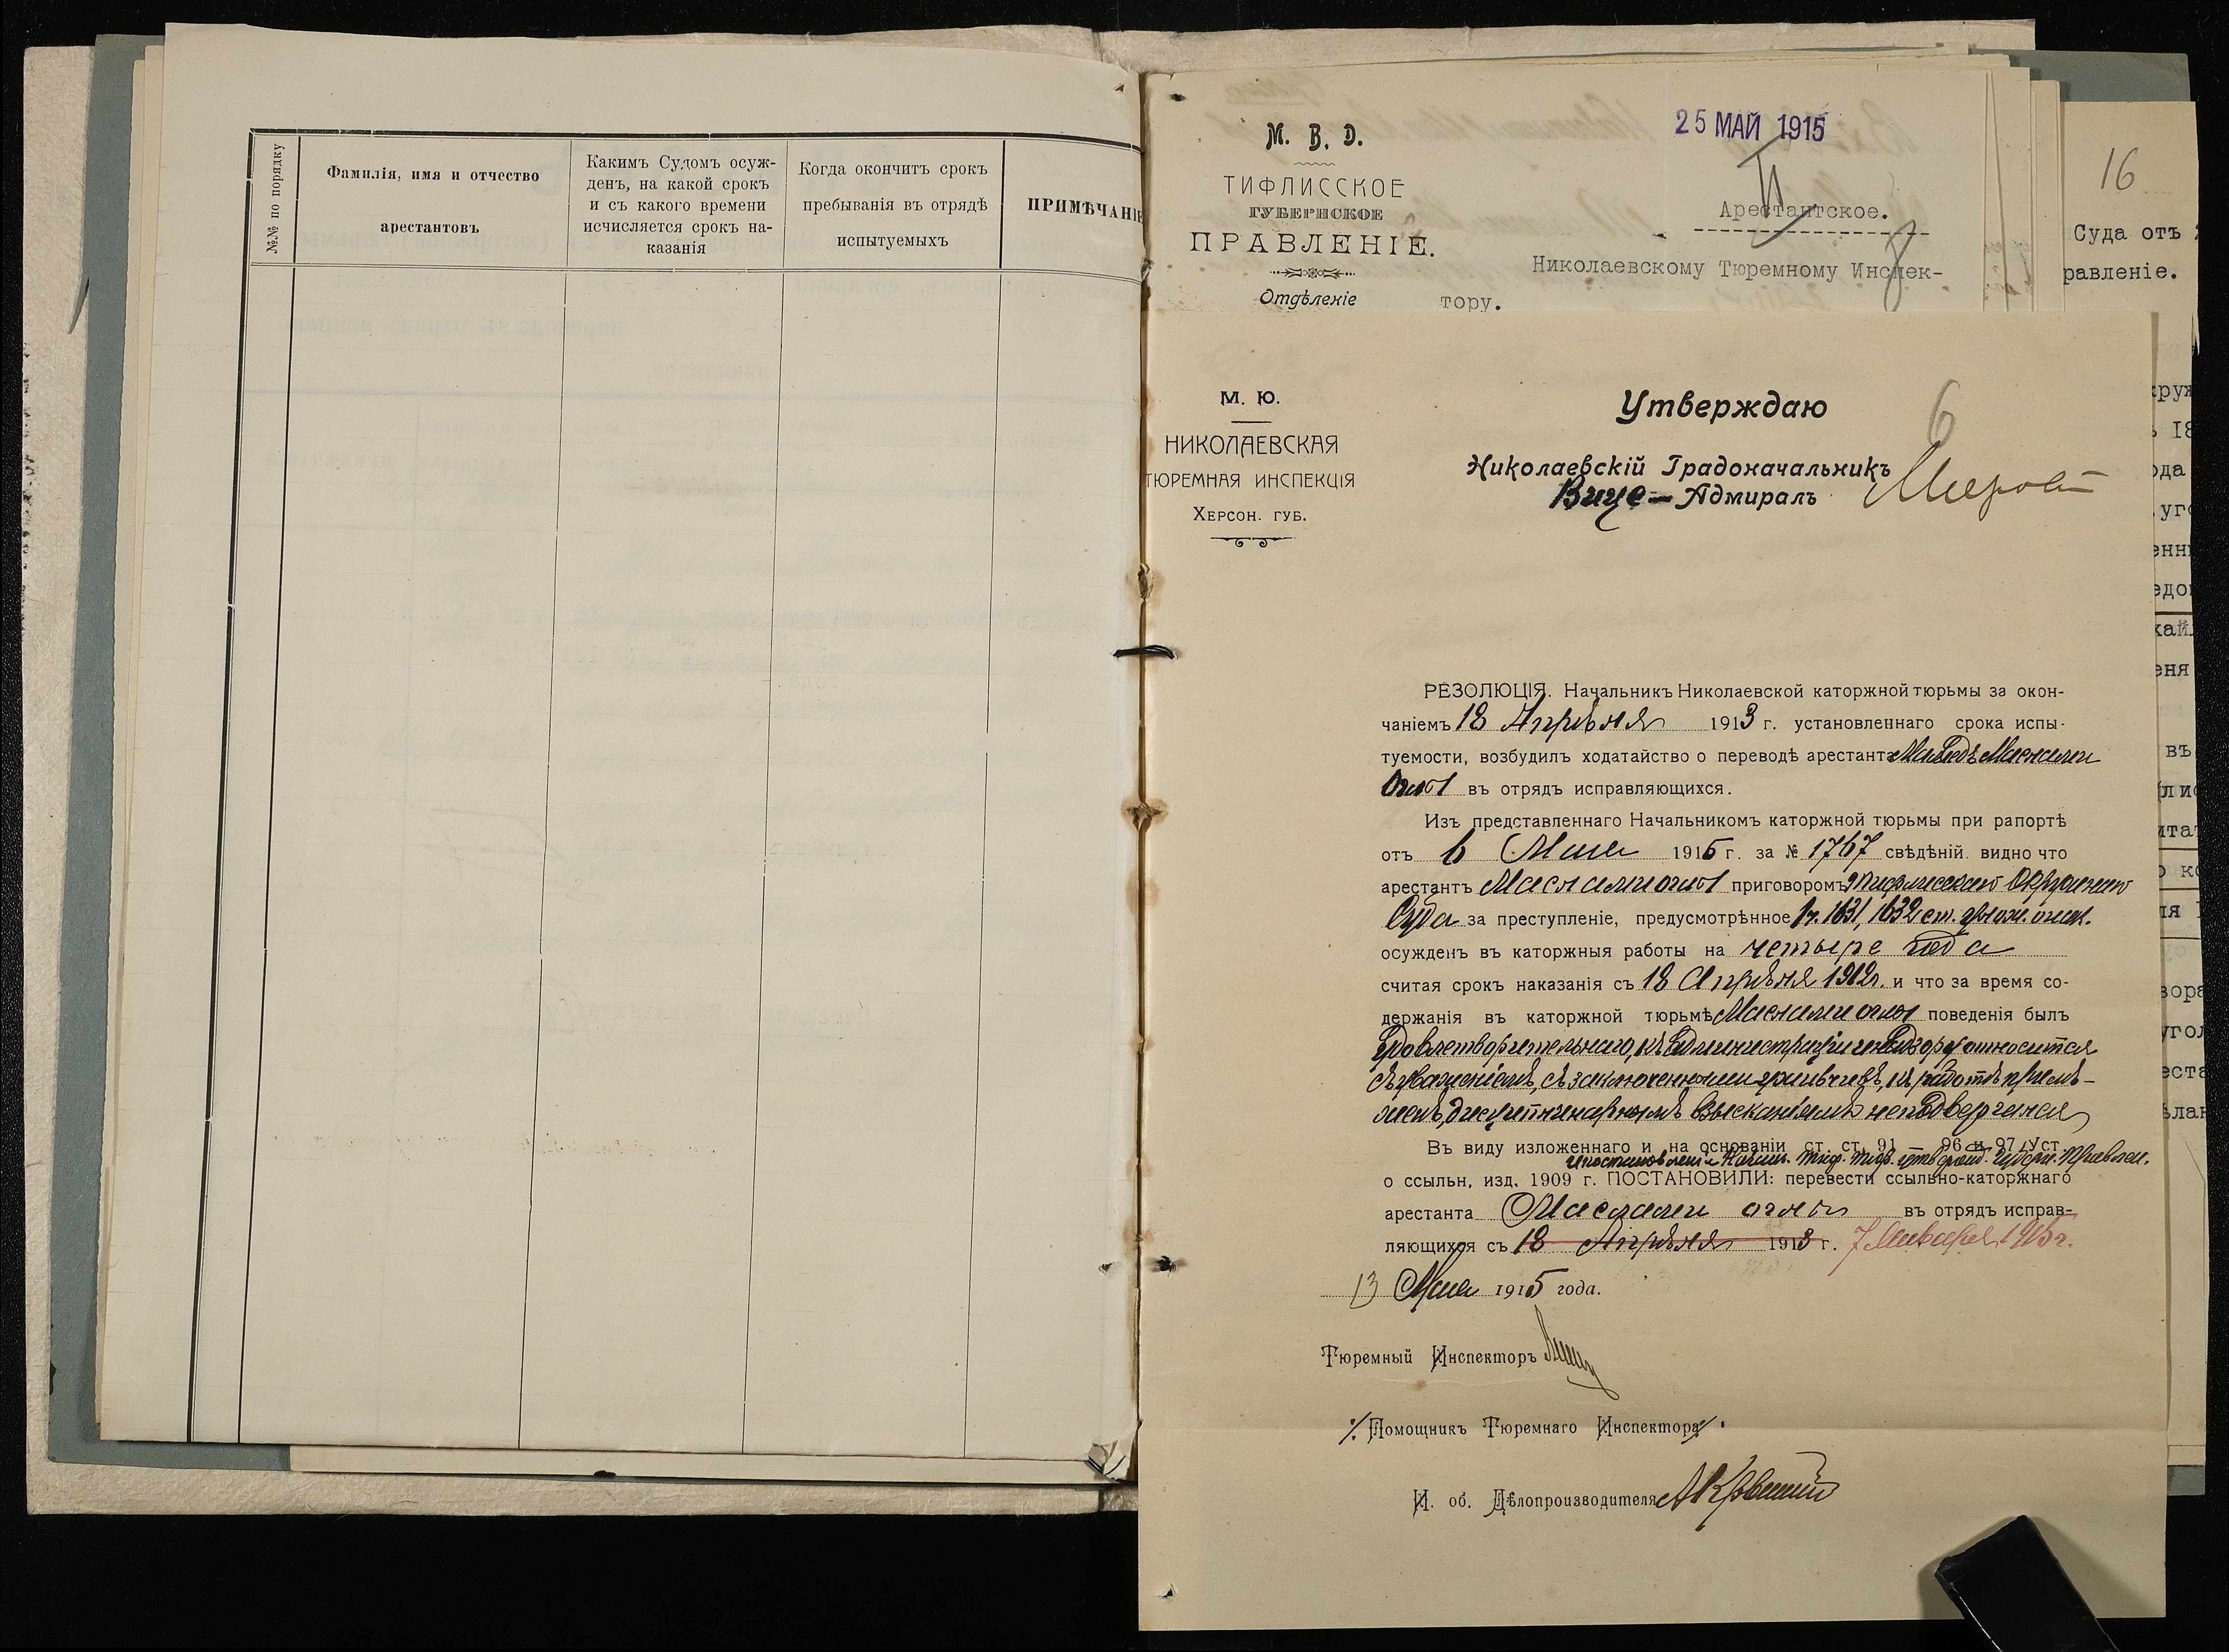 №№ по порядку
Фамилія, имя и отчество
арестантовъ
Какимъ Судомъ осуж-
денъ, на какой срокъ
и съ какого времени
исчисляется срокъ на-
казанія
Когда окончитъ срокъ
пребыванія въ отрядѣ
испытуемыхъ
ПРИМѢЧАНІЕ
М. В. D.
ТИФЛИССКОЕ
ГУБЕРНСКОЕ
ПРАВЛЕНІЕ.
Отдѣленіе
25 МАЙ 1915
Арестантское.
Николаевскому Тюремному Инспек-
тору.
16
Суда отъ
равленіе.
М. Ю.
НИКОЛАЕВСКАЯ
ТЮРЕМНАЯ ИНСПЕКЦІЯ
ХЕРСОН. ГУБ.
6
Утверждаю
Николаевскій Градоначальникъ
Вице-Адмиралъ
РЕЗОЛЮЦІЯ. Начальникъ Николаевской каторжной тюрьмы за окон-
чаніемъ 18 Апрѣля 1913 г. установленнаго срока испы-
туемости, возбудилъ ходатайство о переводѣ арестанта
Оглы въ отрядъ исправляющихся.
Изъ представленнаго Начальникомъ каторжной тюрьмы при рапортѣ
отъ 6 Мая 1915 г. за № 1767 свѣдѣній видно что
арестантъ приговоромъ Тифлисскаго Окружнаго
Суда за преступленіе, предусмотрѣнное 1 ч. 1631, 1632 ст. улож. о нак.
осужденъ въ каторжныя работы на четыре года
считая срокъ наказанія съ 18 Апрѣля 1912 г. и что за время со-
держанія въ каторжной тюрьмѣ оглы поведенія былъ
удовлетворительнаго, къ администраціи и надзору относится
съ уваженіемъ, съ заключенными уживчивъ, къ работѣ прилѣ-
женъ, дисциплинарнымъ взысканіямъ не подвергался
Въ виду изложеннаго и на основаніи ст. ст. 91 96 и 97 Уст.
и постановленія Тиф. Губерн. Правлен.
о ссыльн. изд. 1909 г. ПОСТАНОВИЛИ: перевести ссыльно-каторжнаго
арестанта оглы въ отрядъ исправ-
ляющихся съ 18 Апрѣля 1913 г. 7 Января 1915 г.
13 Мая 1915 года.
Тюремный Инспекторъ
Помощникъ Тюремнаго Инспектора
И. об. Дѣлопроизводителя